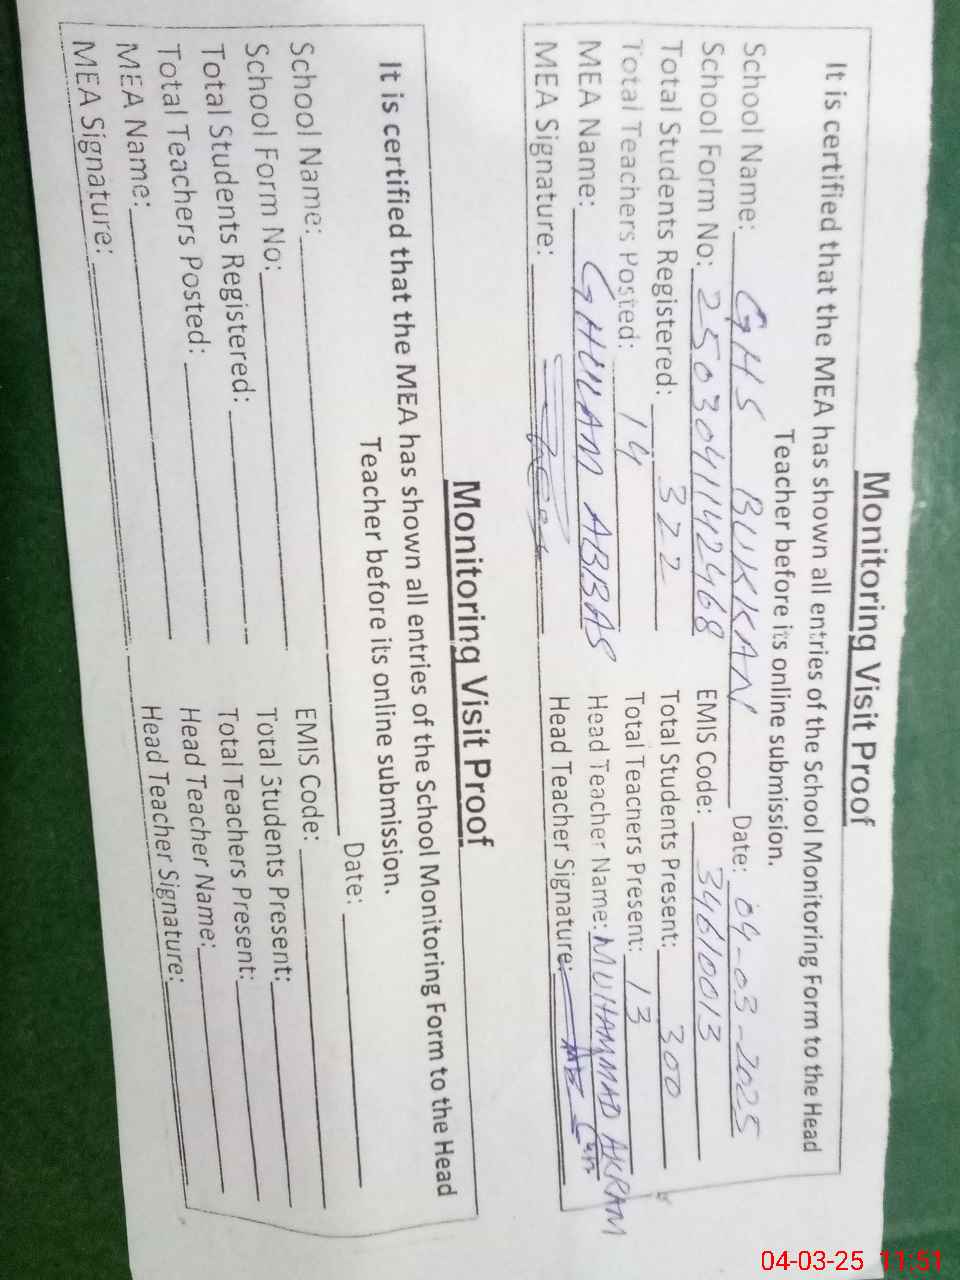 Monitoring Visit Proof
It is certified that the MEA has shown all entries of the School Monitoring Form to the Head
Teacher before its online submission.
School Name: GHS BUKKAN Date: 04-03-2025
School Form No: 2503041142468 EMIS Code: 34610013
Total Students Registered: 322 Total Students Present: 300
Total Teachers Posted: 14 Total Teachers Present: 13
MEA Name: GHULAM ABBAS Head Teacher Name: MUHAMMAD AKRAM
MEA Signature: Head Teacher Signature:
Monitoring Visit Proof
It is certified that the MEA has shown all entries of the School Monitoring Form to the Head
Teacher before its online submission.
School Name: Date:
School Form No: EMIS Code:
Total Students Registered: Total Students Present:
Total Teachers Posted: Total Teachers Present:
MEA Name: Head Teacher Name:
MEA Signature: Head Teacher Signature:
04-03-25 11:51